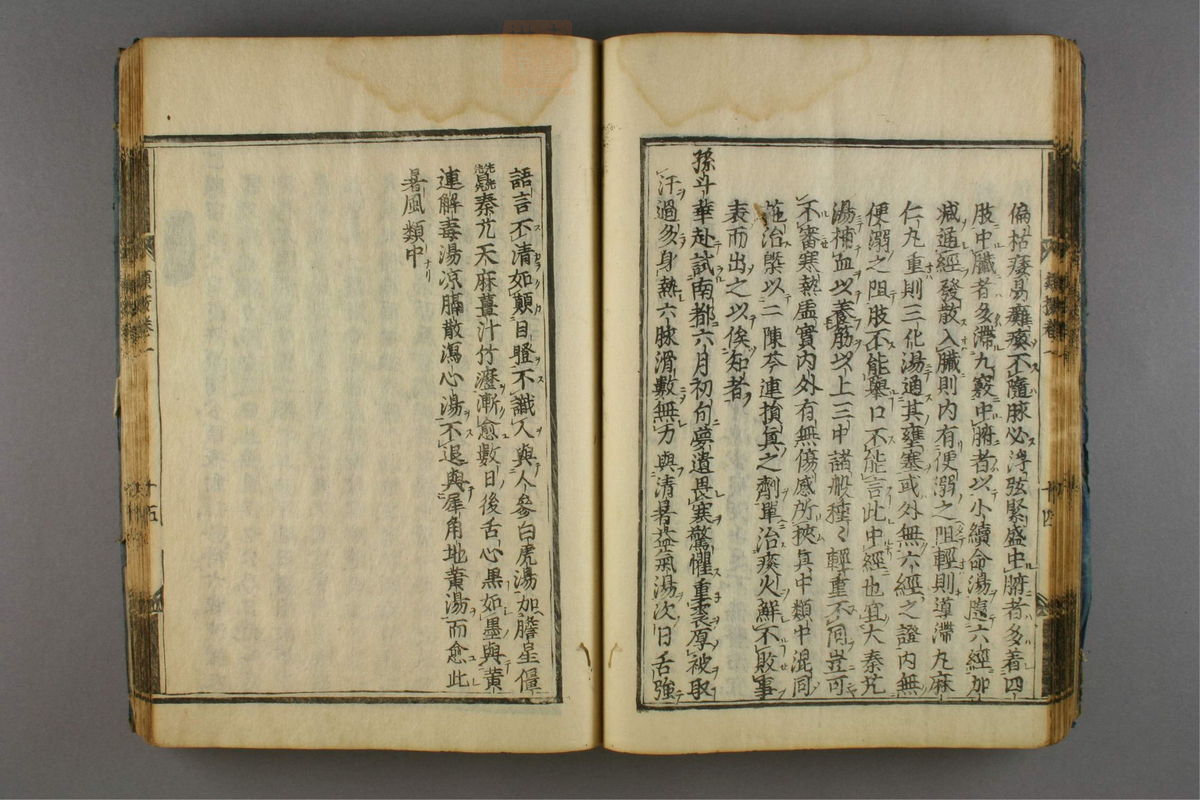 偏枯痿易癱瘓不隨脉必浮弦緊盛中腑者多着四
肢中臟者多滯九竅中腑者以小續命湯隨六經加
减通經發散入臟則内有便溺之阻輕則導滯丸麻
仁丸重則三化湯通其壅塞或外無六經之證内無
便溺之阻肢不能舉口不能言此中經也宜大秦艽
湯補血以養筋以上三中諸般種〻輕重不同豈可
不審寒熱虚實内外有無傷感所挾真中類中混同
施治槩以二陳芩連損真之劑單治痰火鮮不敗事
表而出之以俟知者
孫斗華赴試南都六月初旬夢遺畏寒驚懼重裘厚被取
汗過多身熱六脉滑數無力與清暑益氣湯次日舌強
語言不清如顛目瞪不識人與人參白虎湯加膽星僵
蠶秦艽天麻薑汁竹瀝漸愈數日後舌心黒如墨與黄
連解毒湯凉膈散瀉心湯不退與犀角地黄湯而愈此
暑風類中
卷一
十四
卷一
十五